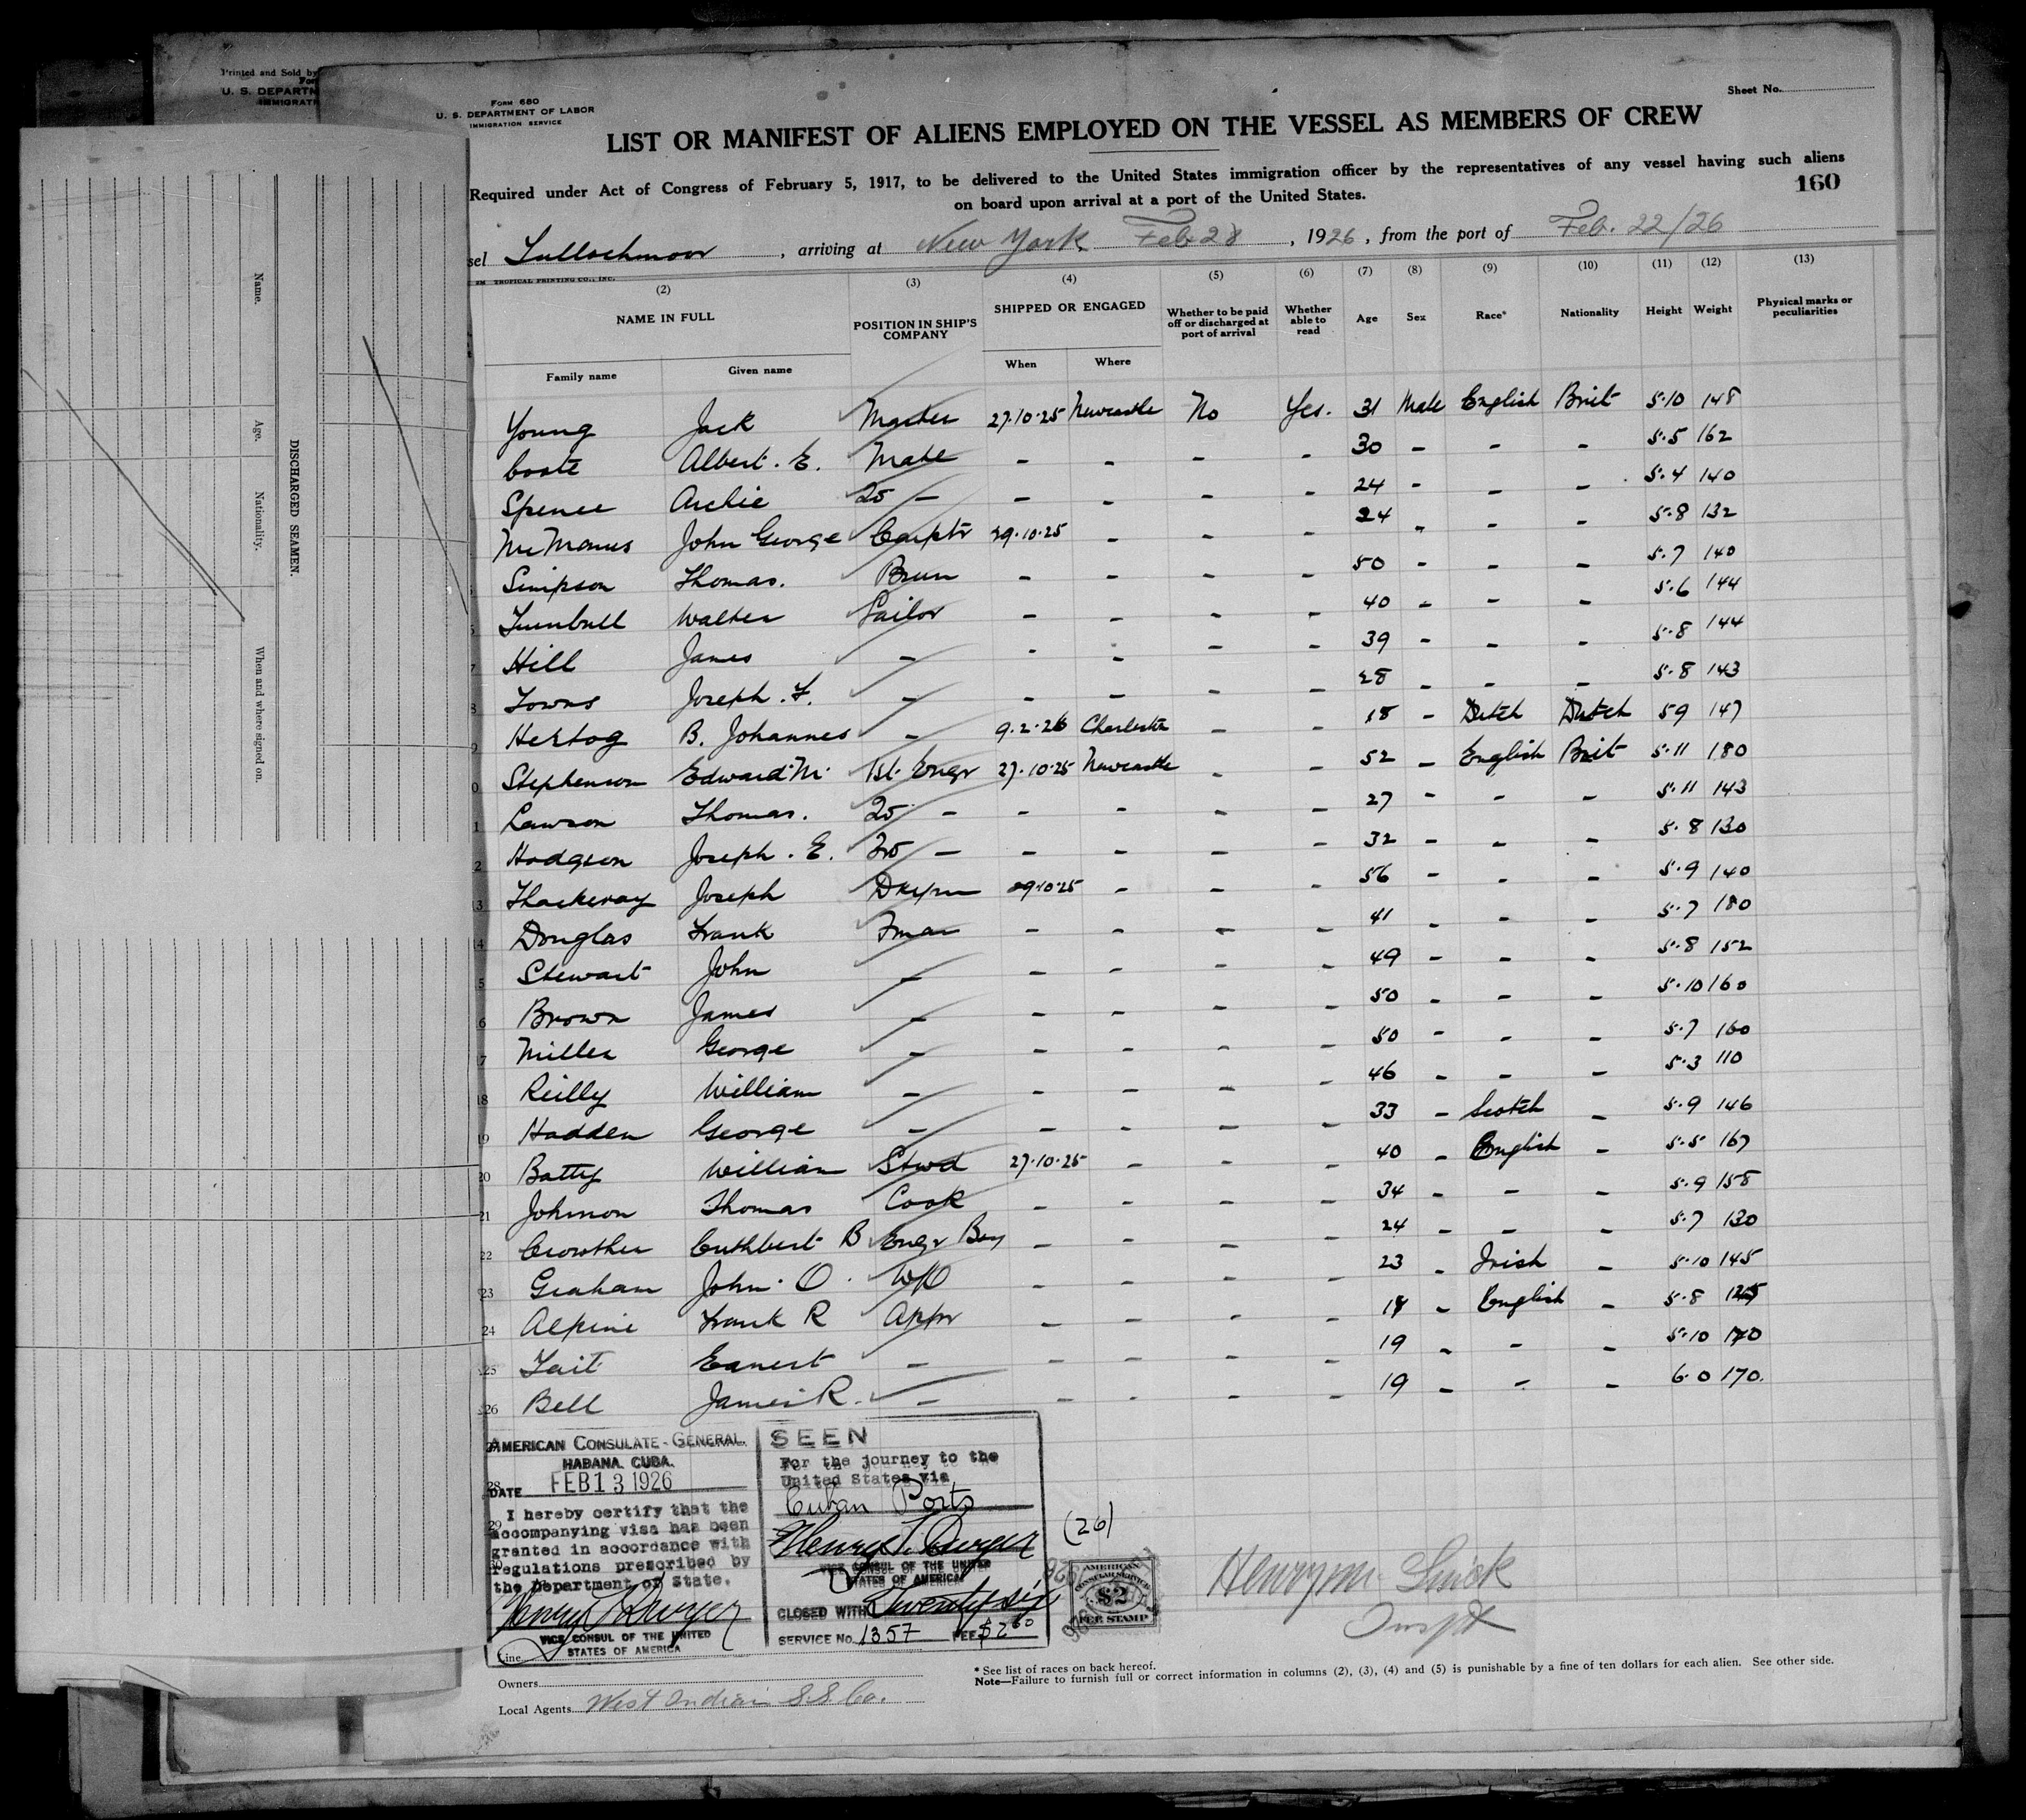 Printed and Sold by
U. S. DEPARTM
IMMIGRATI
Form 680
U. S. DEPARTMENT OF LABOR
IMMIGRATION SERVICE
Sheet No.
LIST OR MANIFEST OF ALIENS EMPLOYED ON THE VESSEL AS MEMBERS OF CREW
Required under Act of Congress of February 5, 1917, to be delivered to the United States immigration officer by the representatives of any vessel having such aliens
on board upon arrival at a port of the United States.
160
sel Tullochmoor, arriving at New York Feb 28, 1926, from the port of Feb. 22/26
TROPICAL PRINTING CO., INC.
(2) (3) (4) (5) (6) (7) (8) (9) (10) (11) (12) (13)
NAME IN FULL POSITION IN SHIP'S COMPANY SHIPPED OR ENGAGED Whether to be paid off or discharged at port of arrival Whether able to read Age Sex Race* Nationality Height Weight Physical marks or peculiarities
Family name Given name When Where
Young Jack Master 27.10.25 Newcastle No Yes. 31 Male English Brit 5.10 148
Coate Albert. E. Mate - - - - 30 - - - 5.5 162
Spence Archie 2o - - - - - 24 - - - 5.4 140
McManus John George Carptr 29.10.25 - - - 24 - - - 5.8 132
Simpson Thomas. Bsun - - - - 50 - - - 5.7 140
Turnbull Walter Sailor - - - - 40 - - - 5.6 144
Hill James - - - - - 39 - - - 5.8 144
8 Towns Joseph. F. - - - - - 28 - - - 5.8 143
Hertog B. Johannes - 9.2.26 Charleston - - 18 - Dutch Dutch 59 147
0 Stephenson Edward M. 1st. Engr 27.10.25 Newcastle - - 52 - English Brit 5.11 180
1 Lawson Thomas. 2o - - - - - 27 - - - 5.11 143
2 Hodgson Joseph. E. 3o - - - - - 32 - - - 5.8 130
3 Thackeray Joseph Dkyman 29.10.25 - - - 56 - - - 5.9 140
4 Douglas Frank Fman - - - - 41 - - - 5.7 180
5 Stewart John - - - - - 49 - - - 5.8 152
6 Brown James - - - - - 50 - - - 5.10 160
7 Miller George - - - - - 50 - - - 5.7 160
18 Reilly William - - - - - 46 - - - 5.3 110
19 Hadden George - - - - - 33 - Scotch - 5.9 146
20 Batty William Stwd 27.10.25 - - - 40 - English - 5.5 167
21 Johnson Thomas Cook - - - - 34 - - - 5.9 158
22 Crowther Cuthbert B Engr Boy - - - - 24 - - - 5.7 130
23 Graham John. O. W/O - - - - 23 - Irish - 5.10 145
24 Alpine Frank R Appr - - - - 18 - English - 5.8
25 Tait Earnest - - - - - 19 - - - 5.10 170
26 Bell James R. - - - - - 19 - - - 6.0 170.
AMERICAN CONSULATE-GENERAL.
HABANA. CUBA.
28 DATE FEB 13 1926
29 I hereby certify that the
accompanying visa has been
granted in accordance with
regulations prescribed by
the Department of State.
VICE CONSUL OF THE UNITED
STATES OF AMERICA
SEEN
For the journey to the
United States via
Cuban Ports
VICE CONSUL OF THE UNITED
STATES OF AMERICA
CLOSED WITH Twenty six
SERVICE No. 1357 FEE $2.60
(26)
AMERICAN
CONSULAR SERVICE
$2
FEE STAMP
Line
Owners
Local Agents West Indian S.S. Co.
* See list of races on back hereof.
Note—Failure to furnish full or correct information in columns (2), (3), (4) and (5) is punishable by a fine of ten dollars for each alien. See other side.
DISCHARGED SEAMEN.
Name. Age. Nationality. When and where signed on.